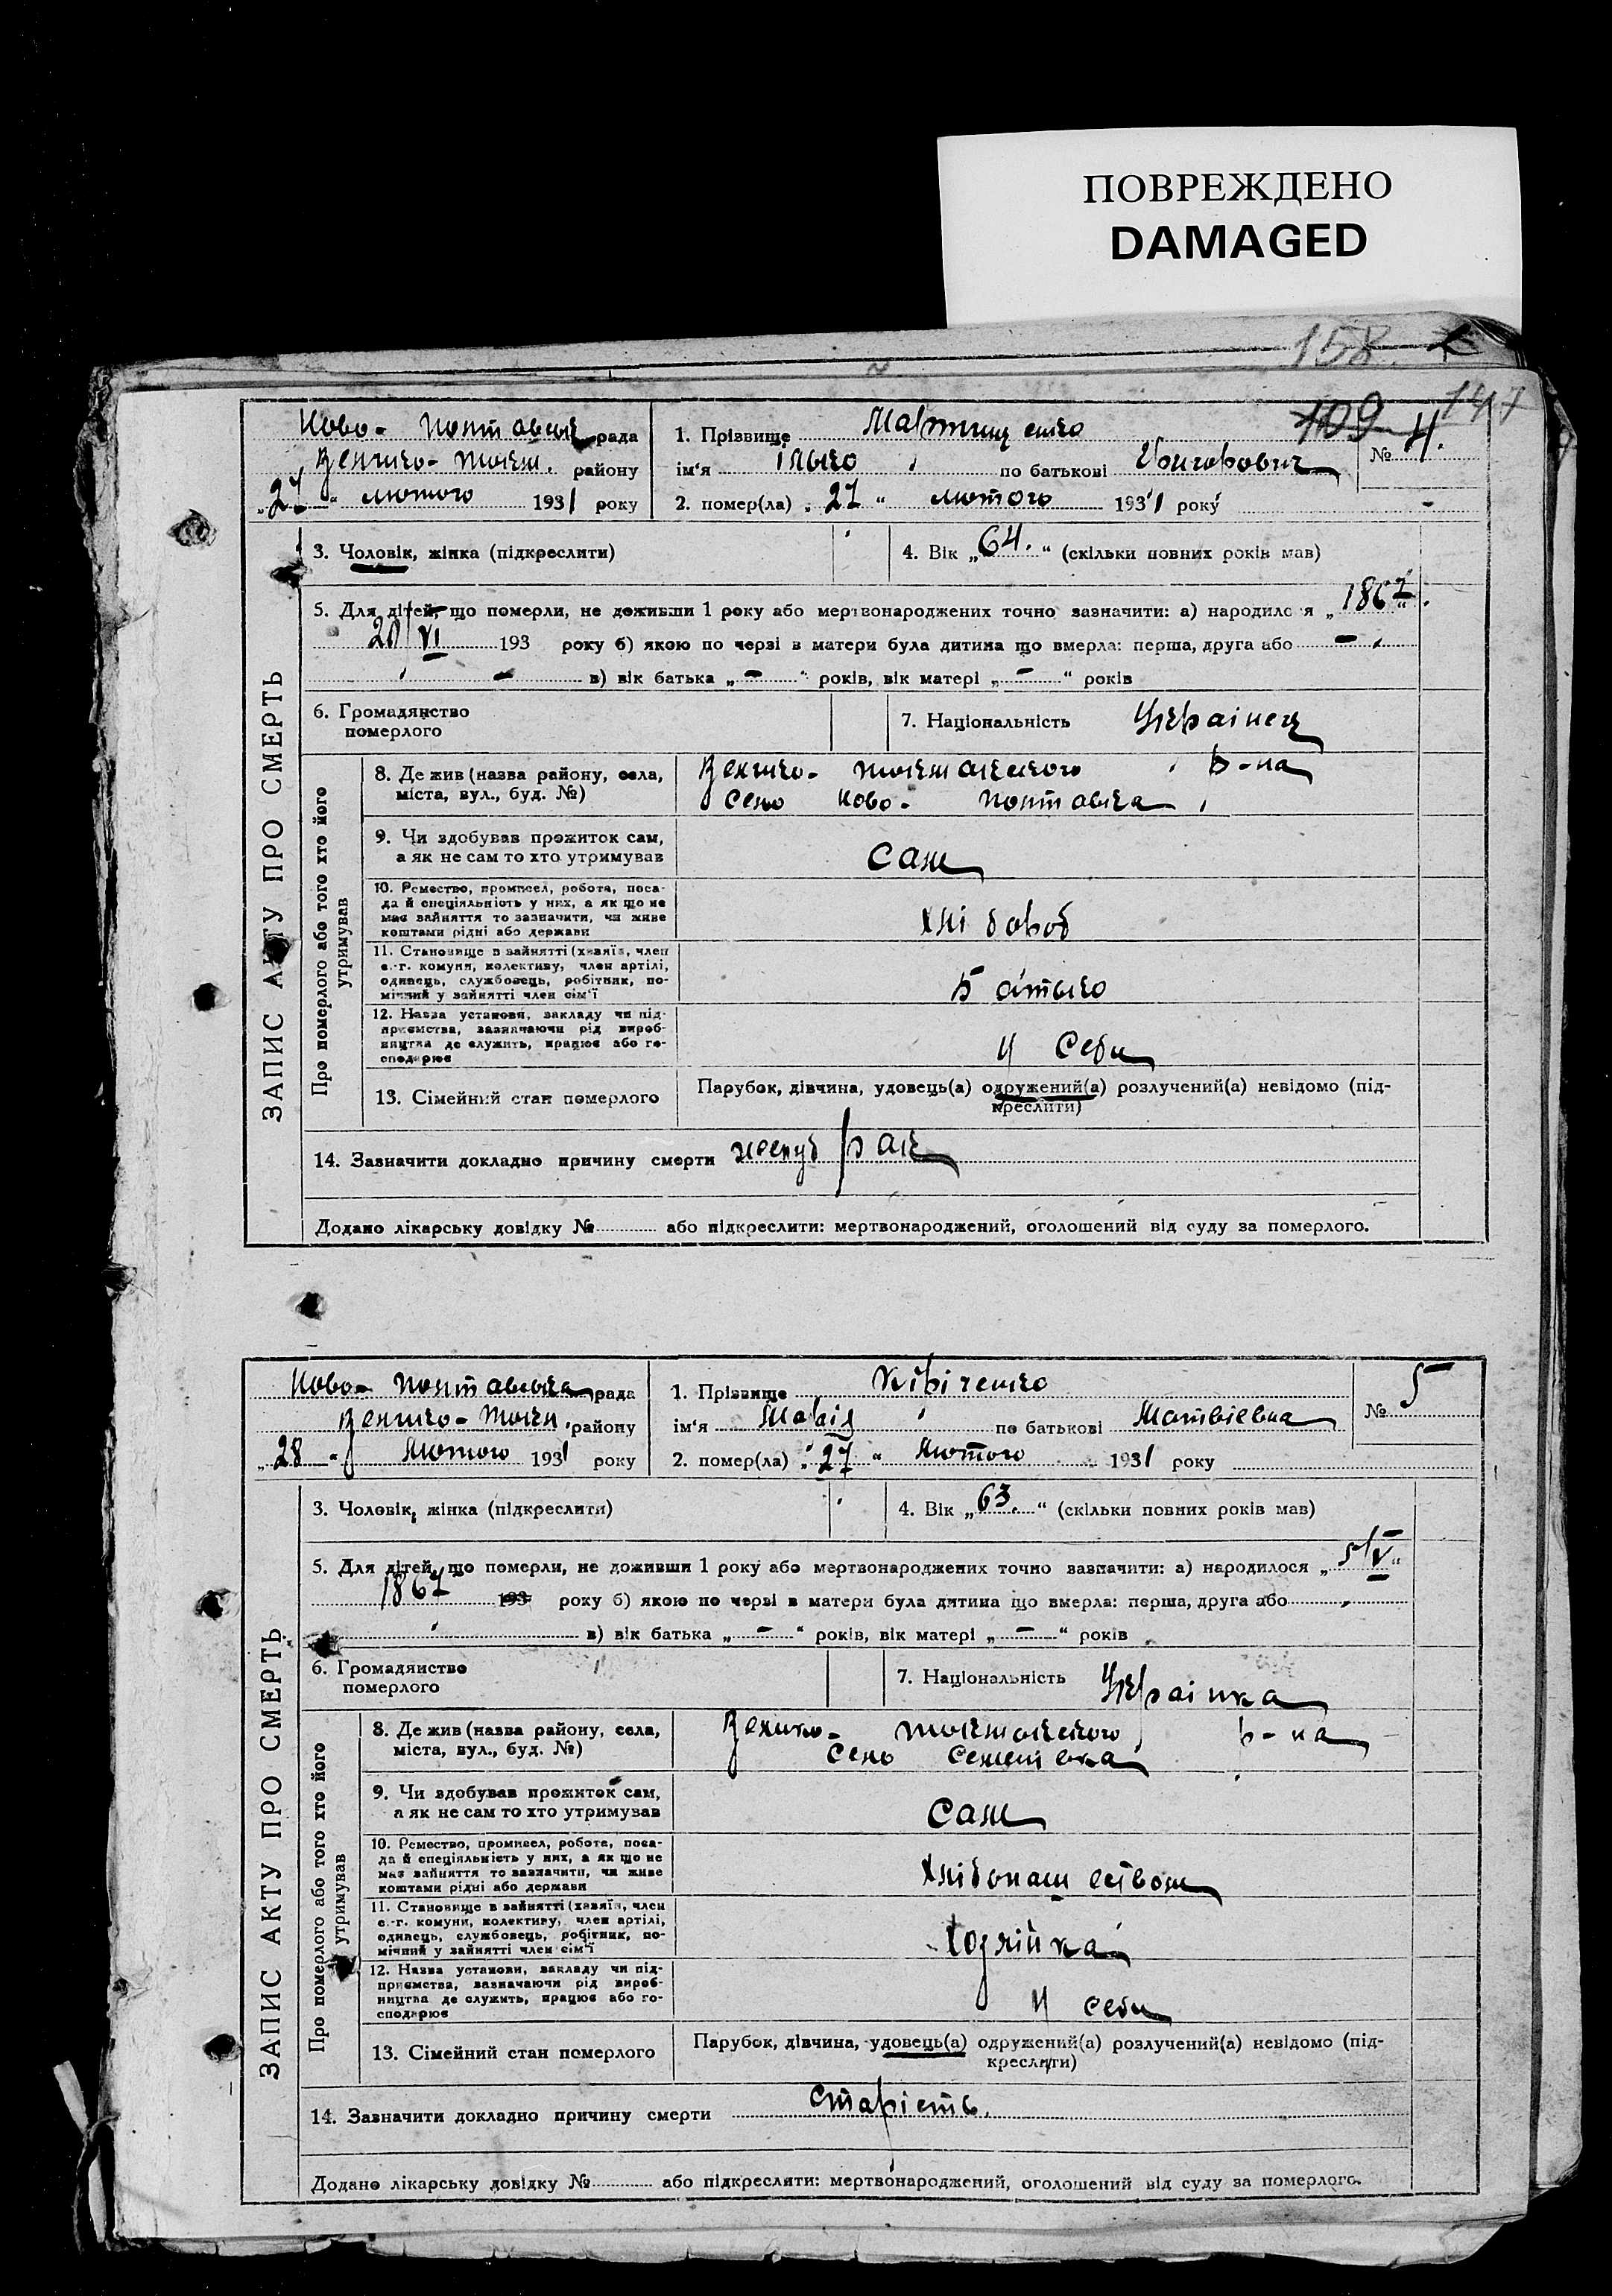 ПОВРЕЖДЕНО
DAMAGED
158
109 147
Ново- Полтавськ рада
Велико- Токм. району
„27“ лютого 1931 року
1. Прізвище Мартищенко № 4.
ім'я Ілько по батькові Григорович
2. помер(ла) „27“ лютого 1931 року
ЗАПИС АКТУ ПРО СМЕРТЬ
3. Чоловік, жінка (підкреслити)
4. Вік „64.“ (скільки повних років мав)
5. Для дітей, що померли, не доживши 1 року або мертвонароджених точно зазначити: а) народилося „1867“
20/VI 193 року б) якою по черзі в матери була дитина що вмерла: перша, друга або -
- в) вік батька „-“ років, вік матері „-“ років
6. Громадянство
померлого
7. Національність Українець
Про померлого або того хто його
утримував
8. Де жив (назва району, села,
міста, вул., буд. №)
Велико- Токмакского р-на
село Ново- Полтавка
9. Чи здобував прожиток сам,
а як не сам то хто утримував
Сам
10. Ремество, промисел, робота, поса-
да й спеціяльність у них, а як що не
має зайняття то зазначити, чи живе
коштами рідні або держави
Хлібороб
11. Становище в зайнятті (хазяїн, член
с.-г. комуни, колективу, член артілі,
одинець, службовець, робітник, по-
мічний у зайнятті член сім'ї
Батько
12. Назва установи, закладу чи під-
приємства, зазначаючи рід вироб-
ництва де служить, працює або го-
сподарює
У себи
13. Сімейний стан померлого
Парубок, дівчина, удовець(а) одружений(а) розлучений(а) невідомо (під-
креслити)
14. Зазначити докладно причину смерти желуд рак
Додано лікарську довідку № або підкреслити: мертвонароджений, оголошений від суду за померлого.
Ново- Полтавська рада
Велико- Токм. району
„28“ Лютого 1931 року
1. Прізвище Кіріченко № 5
ім'я Марія по батькові Матвієвна
2. помер(ла) „27“ Лютого 1931 року
ЗАПИС АКТУ ПРО СМЕРТЬ
3. Чоловік, жінка (підкреслити)
4. Вік „63.“ (скільки повних років мав)
5. Для дітей, що померли, не доживши 1 року або мертвонароджених точно зазначити: а) народилося „5/V“
1867 193 року б) якою по черзі в матери була дитина що вмерла: перша, друга або
в) вік батька „-“ років, вік матері „-“ років
6. Громадянство
померлого
7. Національність Українка
Про померлого або того хто його
утримував
8. Де жив (назва району, села,
міста, вул., буд. №)
Велико- Токмакского р-на
село Семенівка
9. Чи здобував прожиток сам,
а як не сам то хто утримував
Сам
10. Ремество, промисел, робота, поса-
да й спеціяльність у них, а як що не
має зайняття то зазначити, чи живе
коштами рідні або держави
Хлібопашеством
11. Становище в зайнятті (хазяїн, член
с.-г. комуни, колективу, член артілі,
одинець, службовець, робітник, по-
мічний у зайнятті член сім'ї
Хозяйка
12. Назва установи, закладу чи під-
приємства, зазначаючи рід вироб-
ництва де служить, працює або го-
сподарює
У себи
13. Сімейний стан померлого
Парубок, дівчина, удовець(а) одружений(а) розлучений(а) невідомо (під-
креслити)
14. Зазначити докладно причину смерти старість.
Додано лікарську довідку № або підкреслити: мертвонароджений, оголошений від суду за померлого.